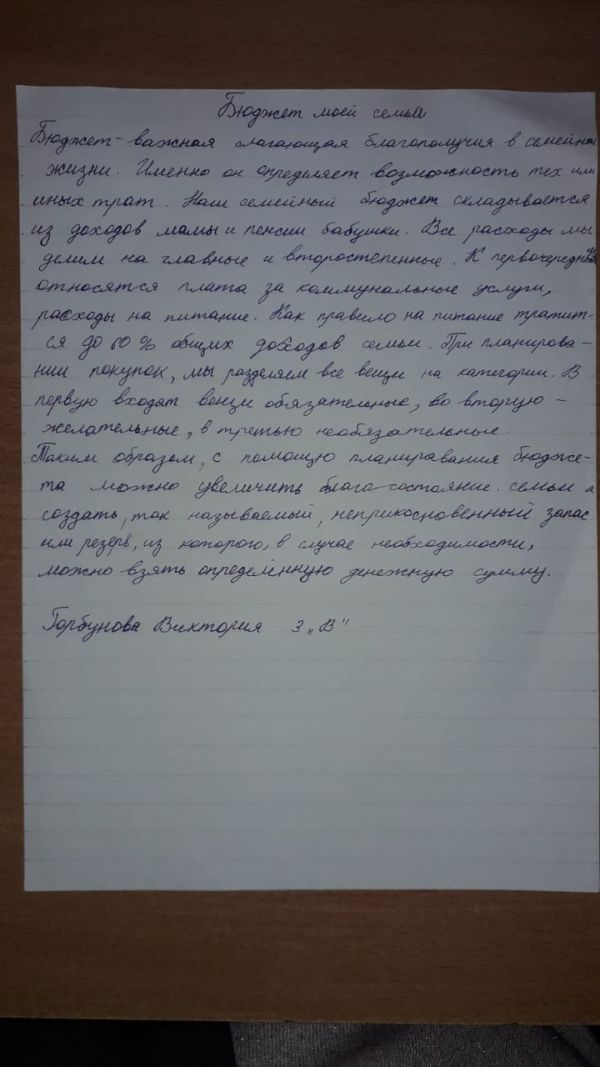 Бюджет моей семьи
Бюджет - важная слагающая благополучия в семейной
жизни. Именно он определяет возможность тех или
иных трат. Наш семейный бюджет складывается
из доходов мамы и пенсии бабушки. Все расходы мы
делим на главные и второстепенные. К первоочередным
относятся плата за коммунальные услуги,
расходы на питание. Как правило на питание тратит-
ся до % общих доходов семьи. При планирова-
нии покупок, мы разделяем все вещи на категории. В
первую входят вещи обязательные, во вторую -
желательные, в третью необязательные.
Таким образом, с помощю планиравания бюдже-
та можно увеличить благосостояние семьи и
создать, так называемый, неприкосновенный запас
или резерв, из которого, в случае необходимости,
можно взять определённую денежную сумму.
Горбунова Виктория 3 „В"